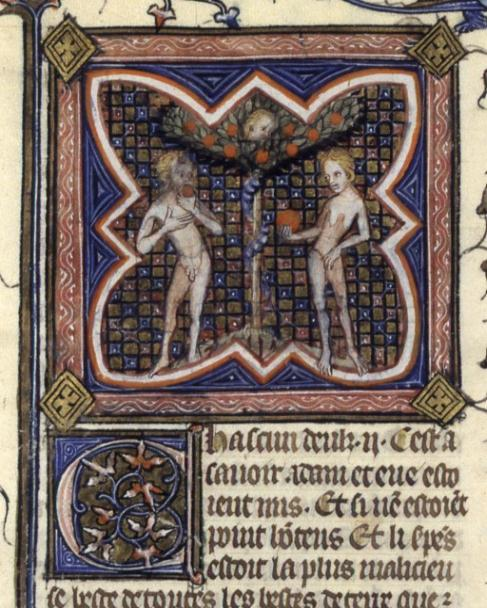 Chascun deulz .ij. Cest a
sauoir. adam et eue esto
ient nus. Et si nē estoiēt
point hōteus Et li sṕes
estoit la plus malicieu
se beste de toutes les bestes de terre que